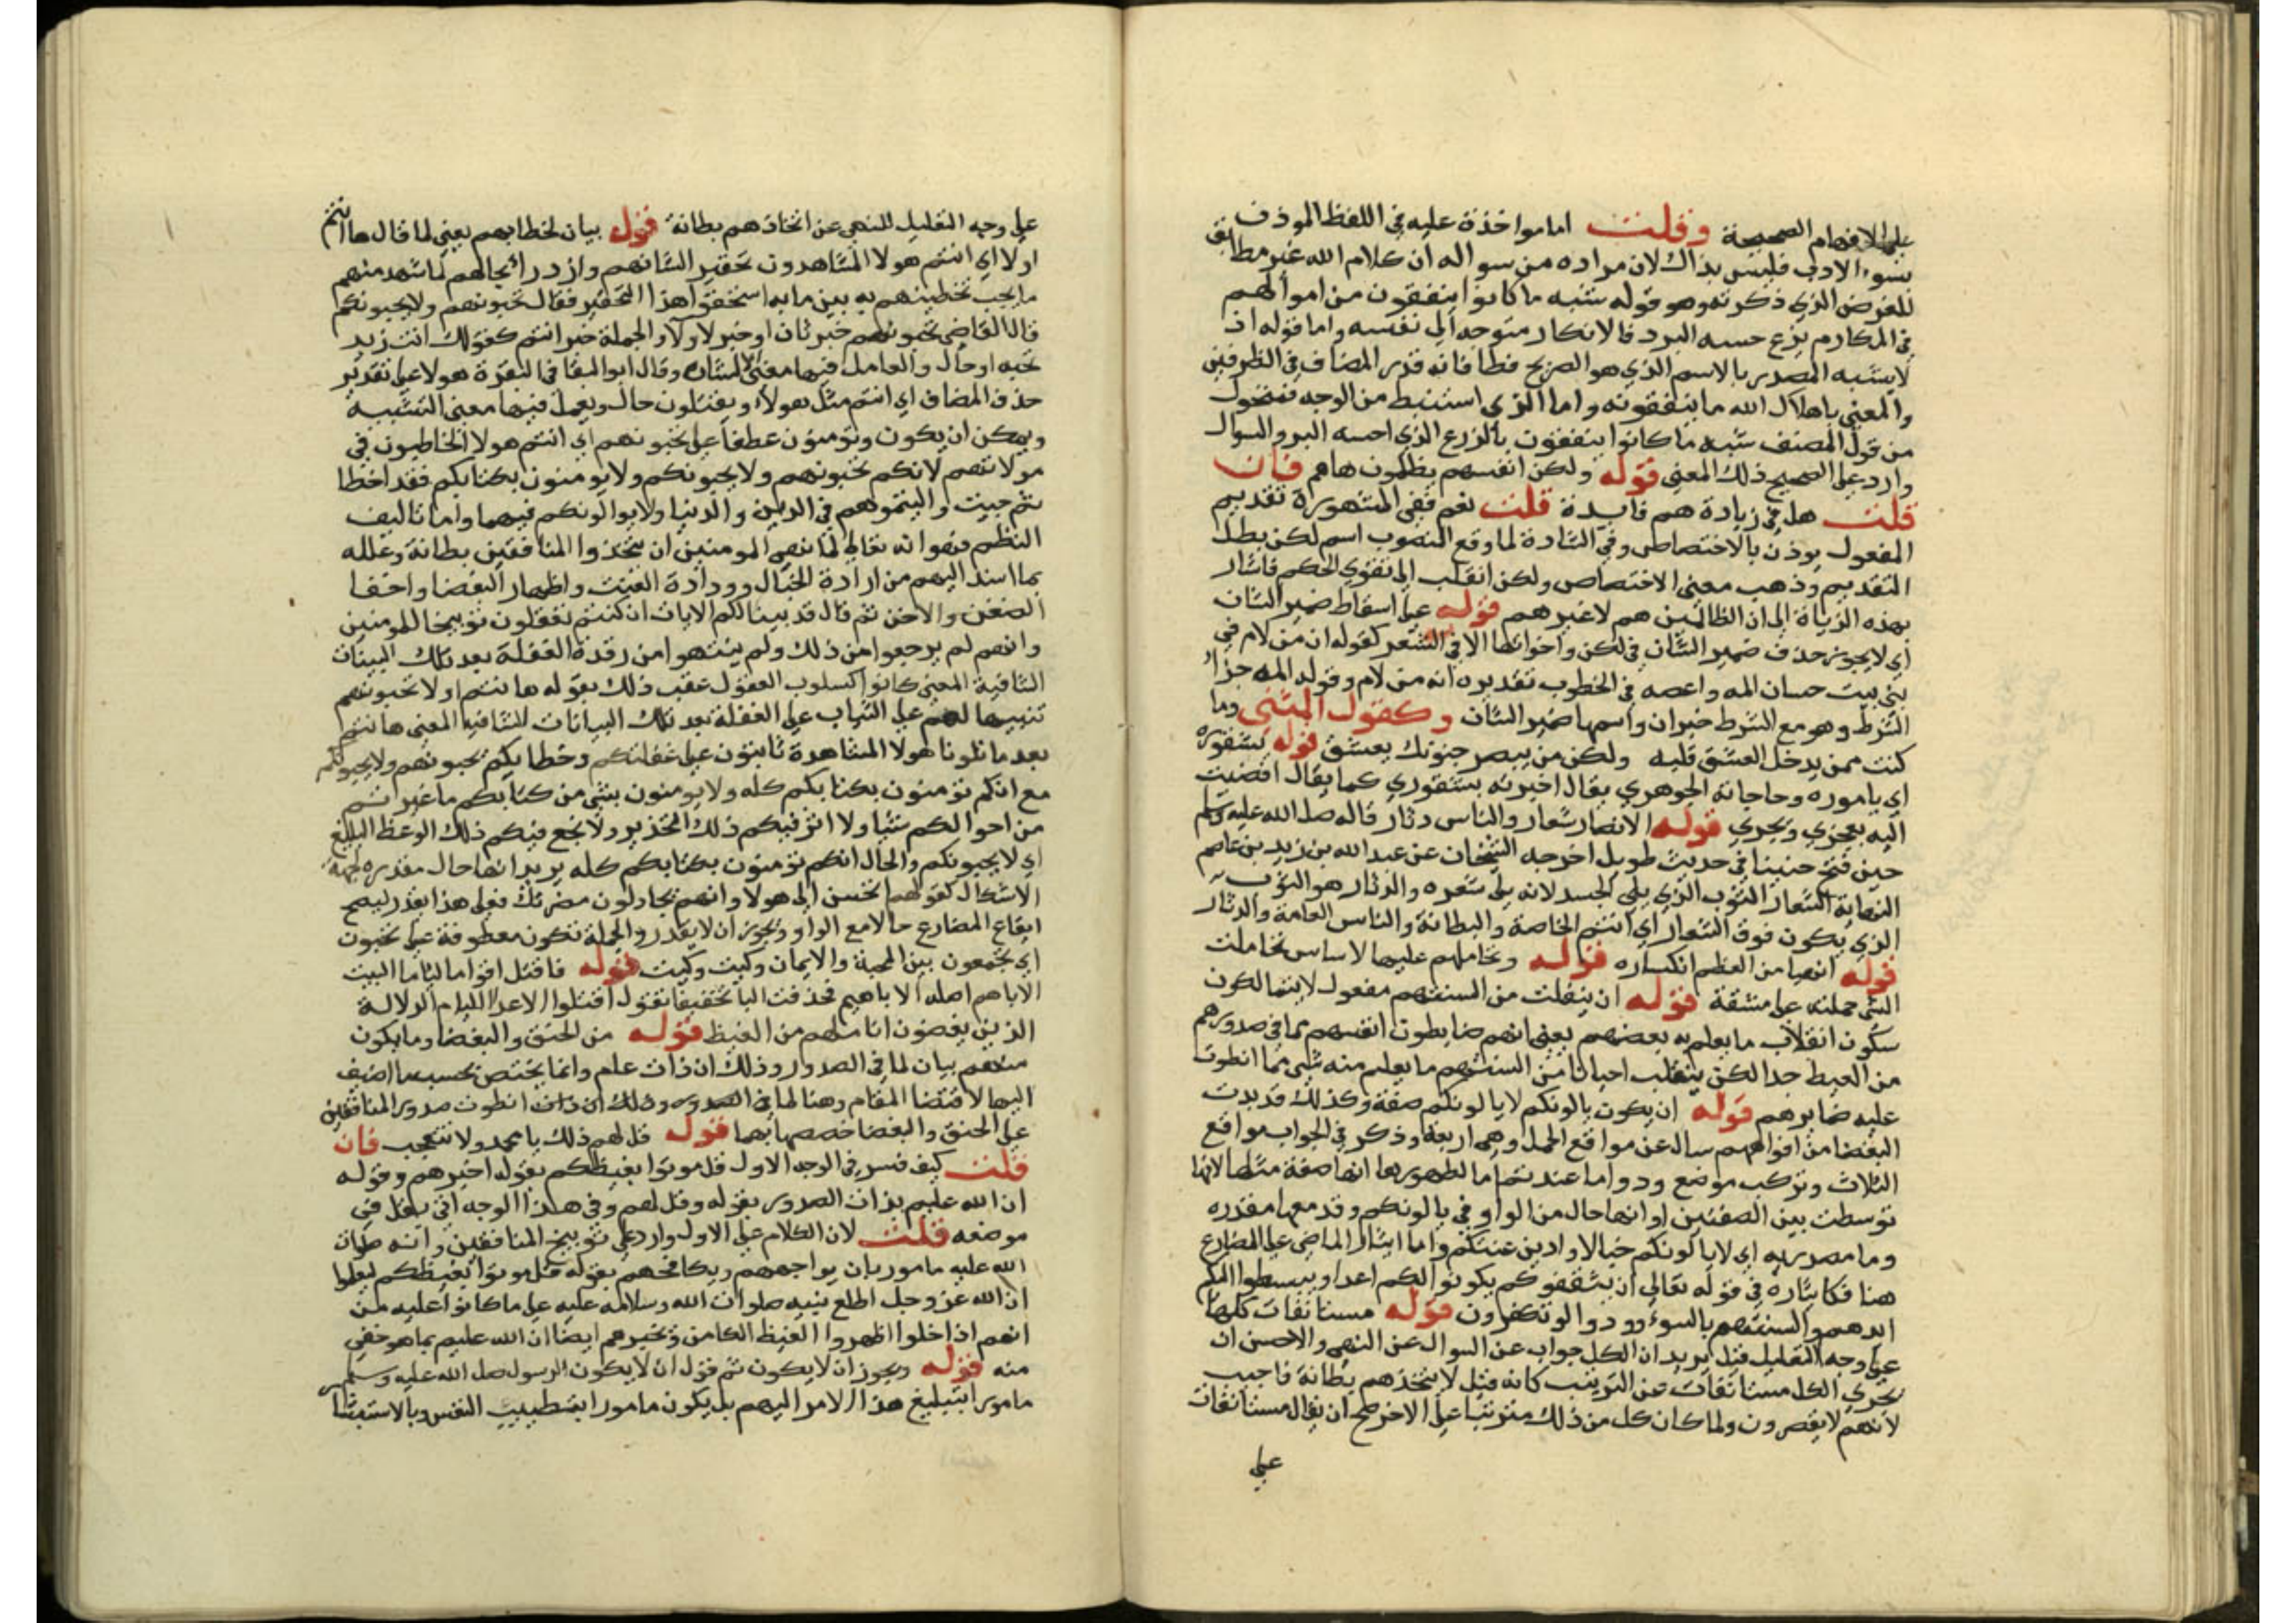 على الافهام الصحيحة وقلت اما مواخذة عليه في اللفظ الموذن
بسوء الادب فليس بذاك لان مراده من سواله ان كلام الله غير مطابق
للغرض الذي ذكرته وهو قوله شبه ما كانوا ينفقون من اموالهم
في المكارم بزرع حسه البرد فالانكار متوجه الى نفسه واما قوله ان
لا يشبه المصدر بالاسم الذي هو الصريح فطا فانه قدر المضاف في الظرفين
والمعنى باهلاك الله ما ينفقونه واما الذي استنبط من الوجه فمنحول
من قول المصنف شبه ما كانوا ينفقون بالزرع الذي احسه البرد والسوال
وارد على الصحيح ذلك المعنى قوله ولكن انفسهم يظلمون هاهم فان
قلت هل في زيادة هم فايدة قلت نعم ففي المشهورة تقديم
المفعول يوذن بالاختصاص وفي الشاذة لما وقع المنصوب اسم لكن بطل
التقديم وذهب معنى الاختصاص ولكن انقلب الى تقوي الحكم فاشار
بهذه الزيادة الى ان الظالمين هم لا غيرهم قوله على اسقاط ضمير الشان
اي لا يجوز حذف ضمير الشان في لكن واخواتها الا في الشعر كقوله ان من لام في
بني بيت حسان المه واعصه في الخطوب تقديره انه من لام وقوله المه جزاء
الشرط وهو مع الشرط خبر ان واسمها ضمير الشان وكقول المتنبي وما
كنت ممن يدخل العشق قلبه ولكن من يبصر جفونك يعشق قوله بشقوره
اي باموره وحاجاته الجوهري يقال اخبرته بشقوري كما يقال افضيت
اليه بعجري وبجري قوله الانصار شعار والناس دثار قاله صلى الله عليه وسلم
حين فتح حنينا في حديث طويل اخرجه الشيخان عن عبد الله بن زيد بن عاصم
النهاية الشعار الثوب الذي يلي الجسد لانه يلي شعره والدثار هو الثوب
الذي يكون فوق الشعار اي انتم الخاصة والبطانة والناس العامة والدثار
قوله انهيا من العظم انكساره قوله وتحاملهم عليهما الاساس تحاملت
الشي حملته على مشقة قوله ان ينفلت من السنتهم مفعول لا يتمالكون
سكون انقلاب ما يعلم به بعضهم يعني انهم ضابطون انفسهم مما في صدورهم
من الغيظ جدا لكن ينفلت احيانا من السنتهم ما يعلم منه شي مما انطوت
عليه ضمايرهم قوله ان يكون يالونكم لا يالونكم صفة وكذلك قد بدت
البغضا من افواههم سال عن مواقع الجمل وهي اربعة وذكر في الجواب مواقع
الثلاث وترك موضع ودوا ما عنتم اما لظهورها انها صفة مثلها لانها
توسطت بين الصفتين او انها حال من الواو في يالونكم وقد معها مقدره
وما مصدريه اي لا يالونكم خبالا وادين عنتكم واما ايثار الماضي على المضارع
هنا فكايثاره في قوله تعالى ان يثقفوكم يكونوا لكم اعدا ويبسطوا اليكم
ايديهم والسنتهم بالسوء وودوا لو تكفرون قوله مستانفات كلها
على وجه التعليل قيل يريد ان الكل جواب عن السوال عن النهي والاحسن ان
يجري الكل مستانفات عن الترتيب كانه قيل لا تتخذهم بطانة فاجيب
لانهم لا يقصرون ولما كان كل من ذلك مترتبا على الاخر صح ان يقال مستانفات
على
على وجه التعليل للنهي عن اتخاذهم بطانة قوله بيان لخطابهم يعني لما قال ها انتم
اولا اي انتم هولا المشاهدون تحقير الشانهم وازدراء بحالهم لما شهد منهم
ما يجب تخطيتهم به بين ما به استحقوا هذا التحقير فقال تحبونهم ولا يحبونكم
قال القاضي تحبونهم خبر ثان او خبر لاولا والجملة خبر انتم كقولك انت زيد
تحبه او حال والعامل فيها معنى الاشارة وقال ابو البقا في البقرة هولا على تقدير
حذف المضاف اي انتم مثل هولاء وتقتلون حال ويعمل فيها معنى التشبيه
ويمكن ان يكون وتومنون عطفا على تحبونهم اي انتم هولا الخاطيون في
موالاتهم لانكم تحبونهم ولا يحبونكم ولا يومنون بكتابكم فقد اخطا
ثم حيث واليتموهم في الدين والدنيا ولا يوالونكم فيهما واما تاليف
النظم فهو انه تعالى لما نهى المومنين ان يتخذوا المنافقين بطانة وعلله
بما اسند اليهم من ارادة الخبال وودادة العنت واظهار البغضا واخفا
الضغن والاحن ثم قال قد بينا لكم الايات ان كنتم تعقلون توبيخا للمومنين
وانهم لم يرجعوا من ذلك ولم ينتبهوا من رقدة الغفلة بعد تلك البينات
الشافية المعنى كانوا كمسلوب العقول عقب ذلك بقوله ها نتم اولا تحبونهم
تنبيها لهم على الثبات على الغفلة بعد تلك البيانات الشافيه المعنى ها نتم
بعد ما تلونا هولا المشاهدة ثابتون على غفلتكم وخطايكم تحبونهم ولا يحبونكم
مع انكم تومنون بكتابكم كله ولا يومنون بشي من كتابكم ما غير ثم
من احوالكم شيا ولا اثر فيكم ذلك التحذير ولا نجع فيكم ذلك الوعظ البليغ
اي لا يحبونكم والحال انكم تومنون بكتابكم كله يريد انها حال مقدره لجهة
الاشكال كقولهم اتحسن الى هولا وانهم يجادلون مضرتك فعلى هذا يقدر ليصح
ايقاع المضارع حالا مع الواو ويجوز ان لا يقدر والجملة تكون معطوفة على تحبون
اي تجمعون بين المحبة والايمان وكيت وكيت قوله فاقتل اقواما لياما البيت
الاباهم اصله الاباهيم فحذفت اليا تخفيفا تقول اقتلوا الاعدا الليام الدلالة
الذين يعضون اناملهم من الغيظ قوله من الحنق والبغضا وما يكون
منهم بيان لما في الصدور وذلك ان ذات علم وانما يختص بحسب ما اضيف
اليها لاقتضا المقام وهنا لما في الصدور وذلك ان ذات انطوت صدور المنافقين
على الحنق والبغضا خصصها بهما قوله قل لهم ذلك يا محمد ولا تتعجب فان
قلت كيف فسر في الوجه الاول قل موتوا بغيظكم بقوله اخبرهم وقوله
ان الله عليم بذات الصدور بقوله وقل لهم وفي هذا الوجه اقى بقل في
موضعه قلت لان الكلام على الاول وارد على توبيخ المنافقين وانه صلوات
الله عليه مامور بان يواجههم ويكافحهم بقوله قل موتوا بغيظكم ليعلموا
ان الله عز وجل اطلع نبيه صلوات الله وسلامه عليه على ما كانوا عليه من
انهم اذا خلوا اظهروا الغيظ الكامن ويخبرهم ايضا ان الله عليم بما هو خفي
منه قوله ويجوز ان لا يكون ثم قول ان لا يكون الرسول صلى الله عليه وسلم
مامورا بتبليغ هذا الامر اليهم بل يكون مامورا بتطييب النفس وبالاستبشا